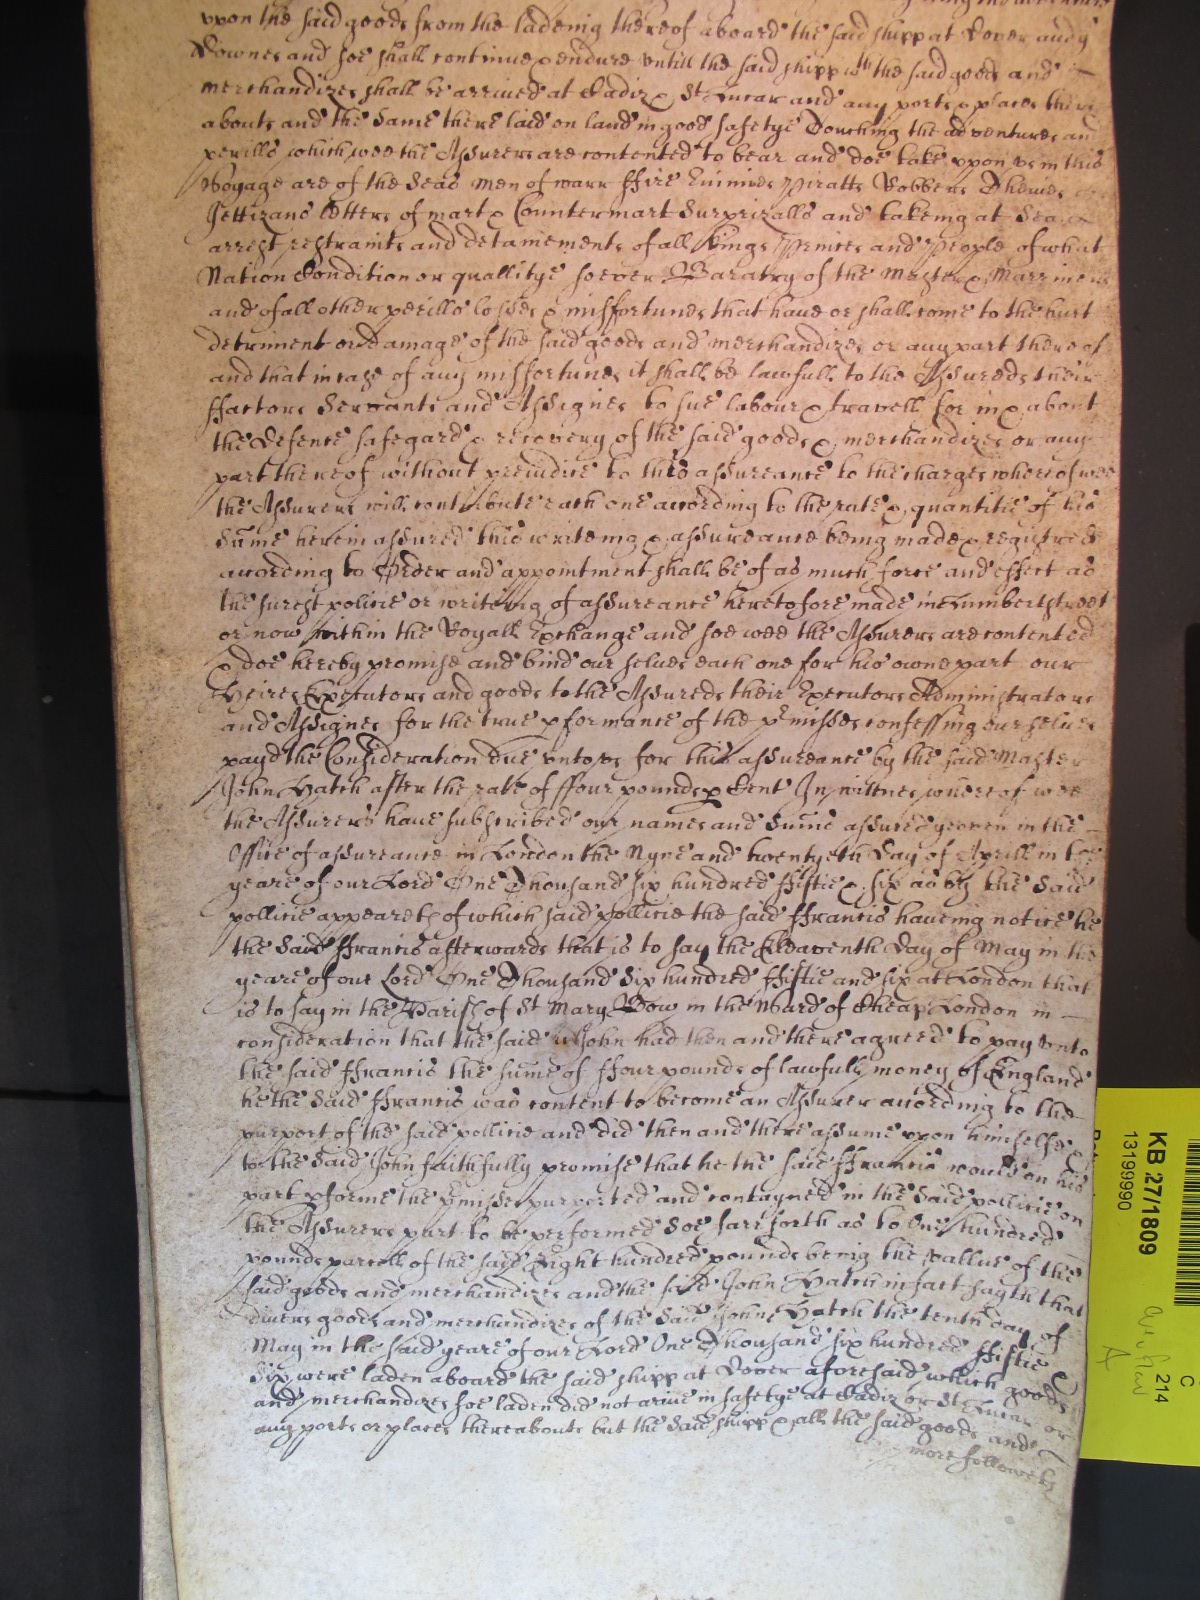 upon the said goods from the ladeing thereof aboard the said shipp at Dover and
Downes and soe shall continue & endure untill the said shipp wth the said goods and
merchandizes shall be arrived at Cadiz & St Lucar and any ports & places there
abouts and the same there laid on land in good safetye Touching the adventures an
perills which wee the Assurers are contented to bear and doe take uppon us in this
Voyage are of the Seas men of warr ffire Enimies Piratts Robbers Theives
Jettizans letters of mart & Countermart Surprizalls and takeing at Sea
arrest restraints and detainements of all Kings Princes and People of what
Nation Condition or quallitye soever Baratry of the Master & Marriners
and of all other perills losses & missfortunes that have or shall come to the hurt
detriment or damage of the said goods and merchandizes or any part thereof
and that in case of any missfortunes it shall be lawfull to the Assureds their
ffactors Servants and Assignes to sue labour & travell for in & about
the Defence safegard & recovery of the said goods & merchandizes or any
part thereof without prejudice to this assureance to the charges whereof wee
the Assurers will contribute each one according to the rate & quantitie of his
sume herein assured this writeing & assureance being made & registred
according to Order and appointment shall be of as much force and effect as
the surest policie or writeing of assureance heretofore made in Lumbertstreet
or now within the Royall Exchange and soe wee the Assurers are contented
& doe hereby promise and bind our selves each one for his owne part our
Heires Executors and goods to the Assureds their Executors Administrators
and Assignes for the true pformance of the pmisses confessing our selves
payd the Consideration due unto us for this assureance by the said Master
John Hatch after the rate of ffour pounds p Cent In wittnes whereof wee
the Assurers have subscribed our names and sume assured yeoven in the
Office of assureance in London the Nyne and twentyeth day of Aprill in the
yeare of our Lord One Thousand six hundred ffiftie & six as by the said
pollicie appeareth of which said pollicie the said ffrancis haveing notice he
the said ffrancis afterwards that is to say the Eleaventh day of May in the
yeare of our Lord One Thousand Six hundred ffiftie and six at London that
is to say in the Parish of St Mary Bow in the Ward of Cheap London in
consideration that the said John had then and there agreed to pay unto
the said ffrancis the sume of ffour pounds of lawfull money of England
he the said ffrancis was content to become an Assurer according to the
purport of the said pollicie and did then and there assume upon himselfe &
to the said John faithfully promise that he the said ffrancis would on his
part pforme the pmisses purported and contayned in the said pollicie on
the Assurers part to be performed soe farr forth as to One hundred
pounds parcell of the said Eight hundred pounds being the vallue of the
said goods and merchandizes and the said John Hatch in fact sayth that
divers goods and merchandizes of the said John Hatch the tenth day of
May in the said yeare of our Lord One Thousand six hundred ffiftie &
Six were laden aboard the said shipp at Dover aforesaid which goods
and merchandizes soe laden did not arive in safetye at Cadiz or St Lucar or
any ports or places thereabouts but the said shipp & all the said goods and
more followeth
KB 27/1809
13199990
C
214
A